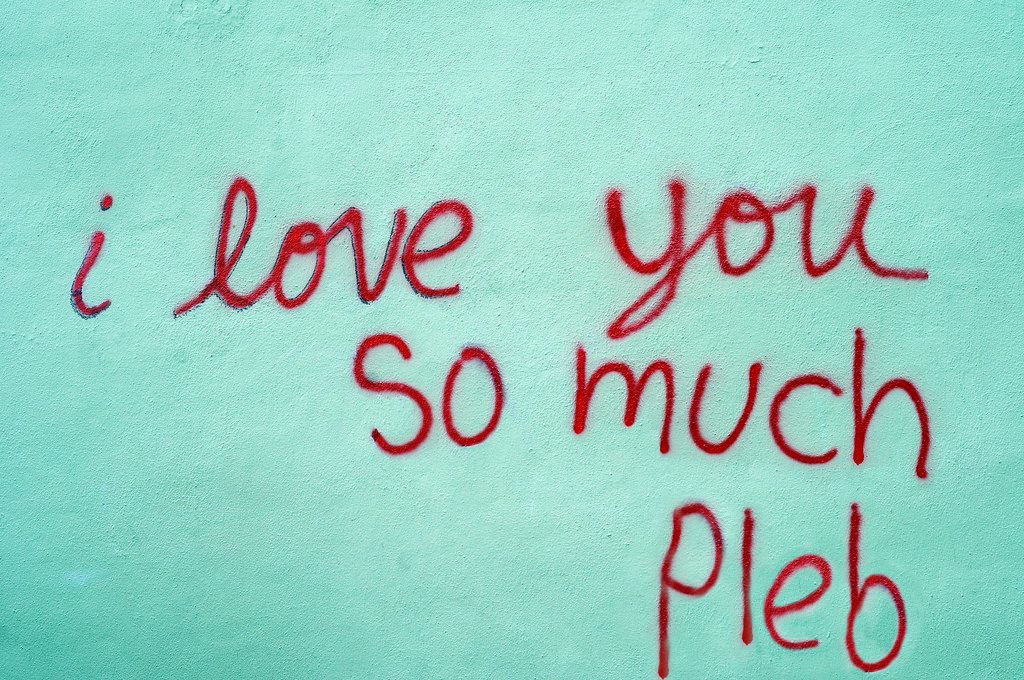 i love you
so much
Pleb